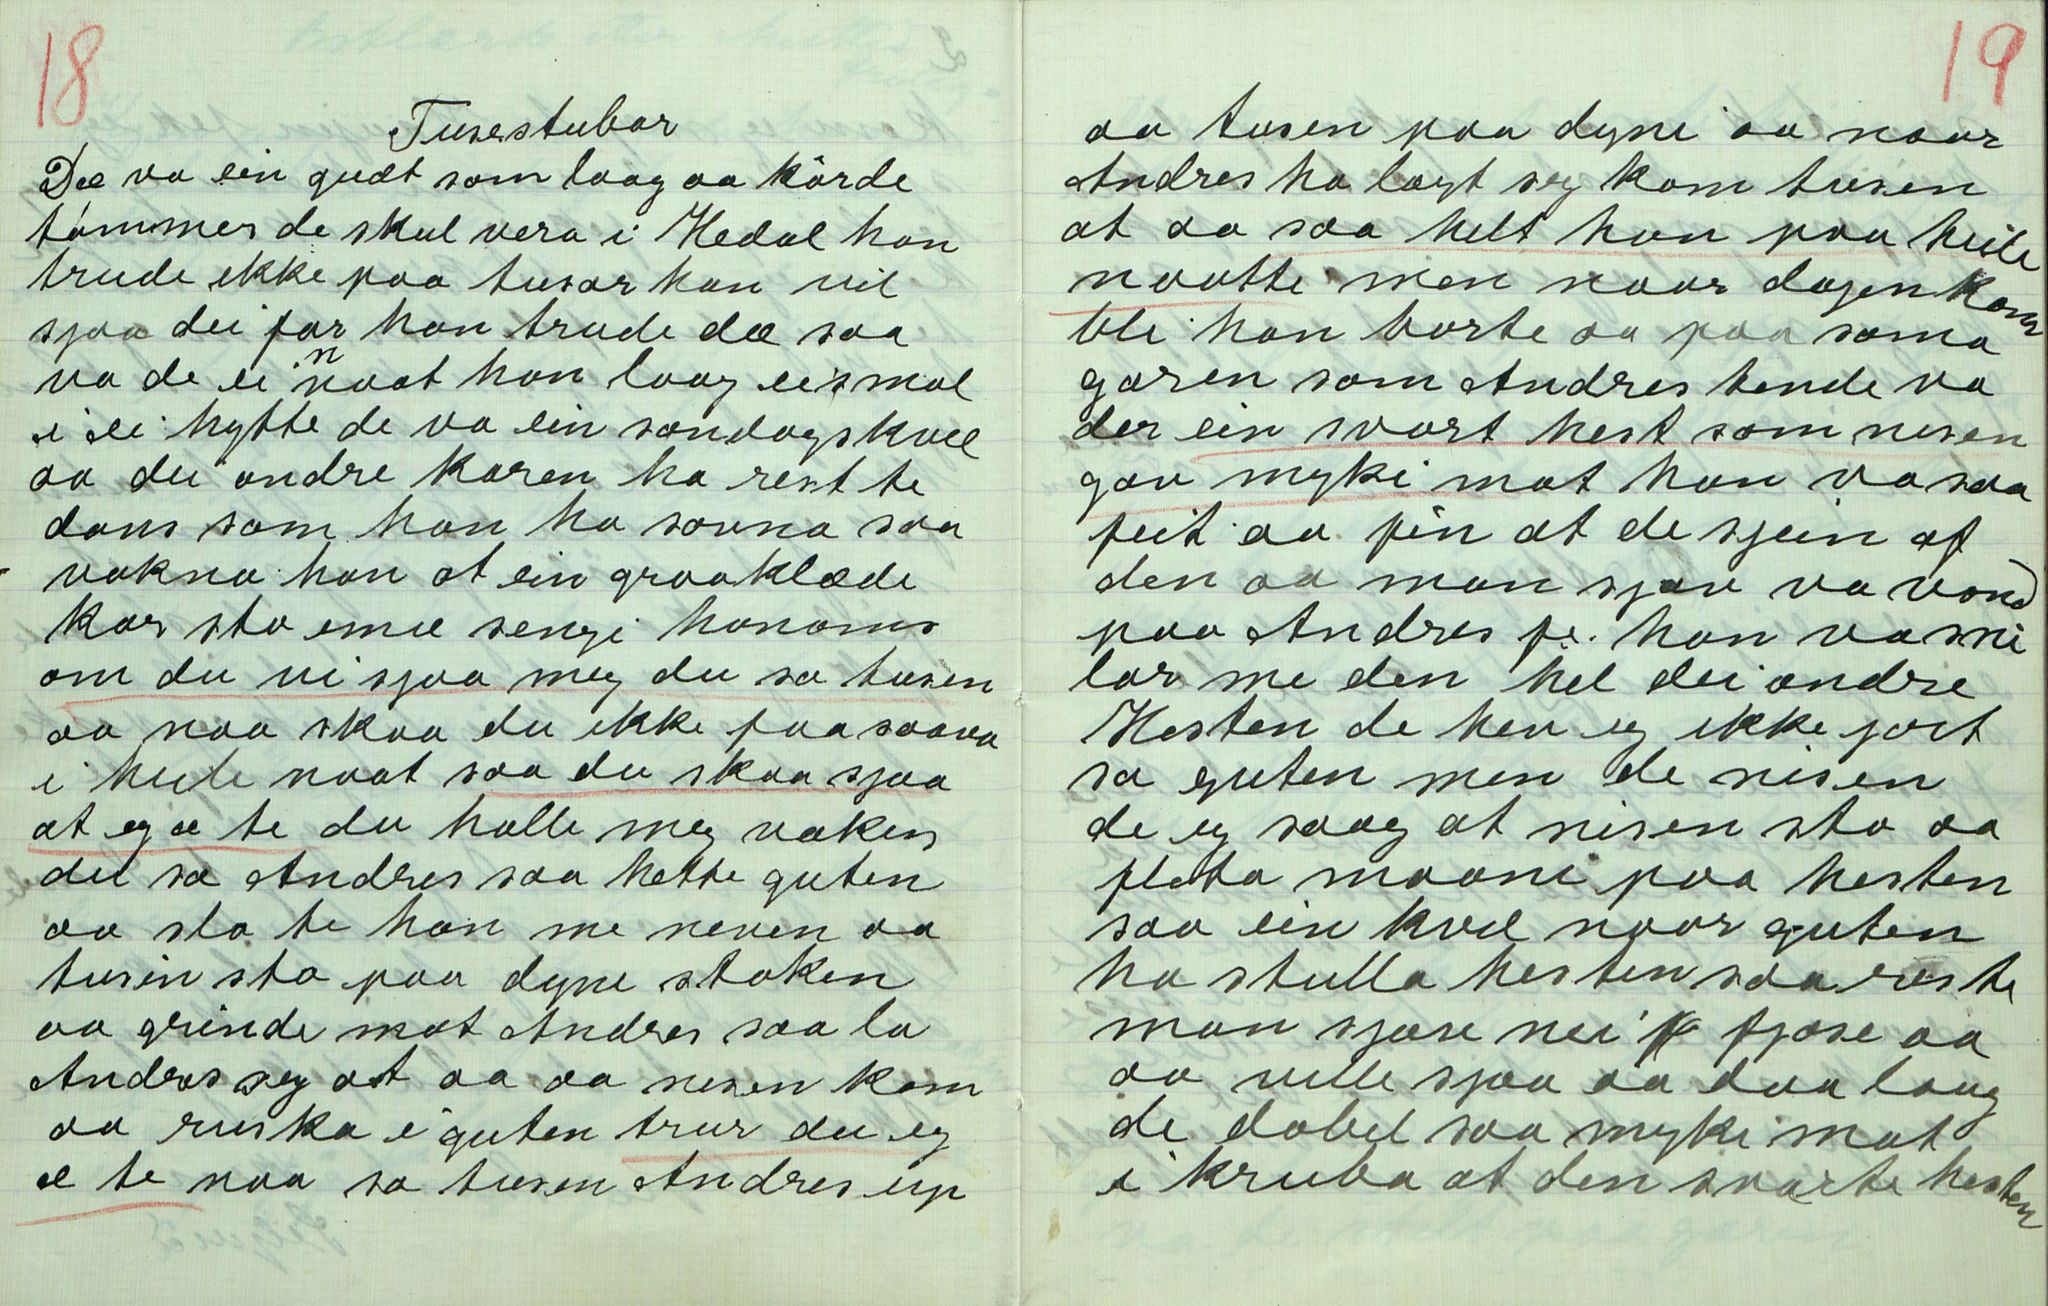 18
Tusestubar
Dæ va ein gut som laag aa körde
tömmer de skul vera i Hedal han
trude ikke paa tusar han vil
sjaa dei før han trude dæ saa
va de ei naat han laag eismal
i ei hytte de va ein søndagskvel
aa dei andre karen ha rest te
dans som han ha sovna saa
vakna han at ein graaklæde
kar sto emæ sengi hanoms
om du vi sjaa meg du sa tusen
aa naa skaa du ikke faa saava
i heile naat saa du skaa sjaa
at eg æ te du halle meg vaken
du sa Andres saa hette guten
aa slo te han me neven aa
tusin sto paa dyne stoken
aa grinde mot Andres saa la
Andres seg at aa aa nisen kom
aa ruska i guten trur du eg
æ te naa sa tusen Andres up
19
aa tusen paa dyni aa naar
Andres ha lagt seg kom tusen
at aa saa helt han paa heile
naatte men naar dagen kom
ble han borte aa paa sama
garen som Andres tende va
der ein svart hest som nisen
gav myki mat han va saa
feit aa fin at de sjein af
den aa man sjøv va vond
paa Andres fe. han va sni
lar me den hel dei andre
Hesten de hev eg ikke jort
sa guten men de nisen
de eg saag at nisen sto aa
fleta maani paa hesten
saa ein kvel naar guten
ha stulla hesten saa reste
man sjøse nei i fjøse aa
aa ville sjaa aa daa laag
de dobel saa myki mat
i kruba at den svarte hesten